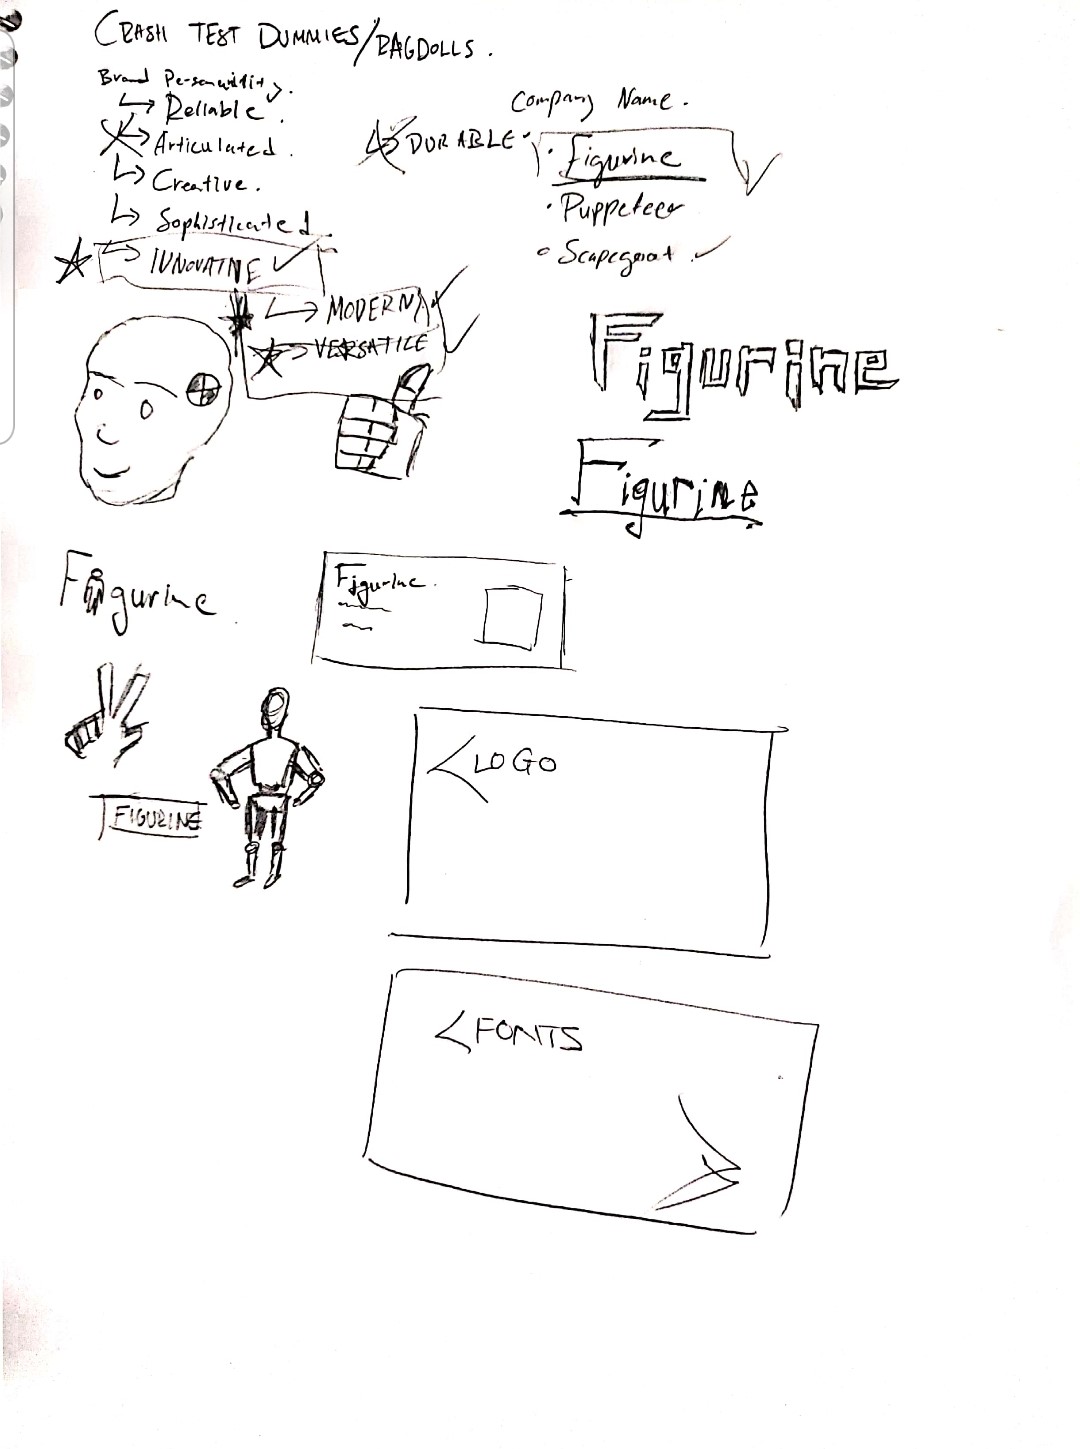 CRASH TEST DUMMIES/RAGDOLLS.
Brand Personality.
Reliable.
Articulated.
Creative.
Sophisticated.
INNOVATINE
MODERN
VERSATILE
DURABLE
Company Name.
Figurine
Puppeteer
Scapegoat
Figurine
Figurine
Figurine
Figurine
FIGURINE
LOGO
FONTS